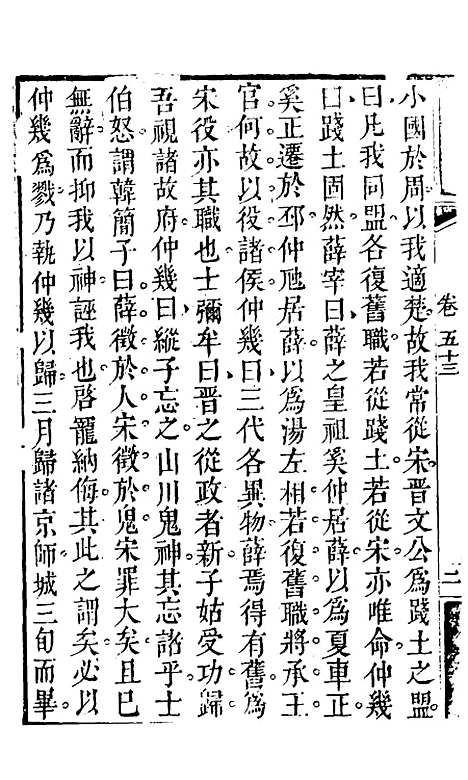 小國於周以我適楚故我常從宋晉文公爲踐土之盟
曰凡我同盟各復舊職若從踐土若從宋亦唯命仲幾
曰踐土固然薛宰曰薛之皇祖奚仲居薛以爲夏車正
奚正遷於邳仲虺居薛以爲湯左相若復舊職將承王
官何故以役諸侯仲幾曰三代各異物薛焉得有舊爲
宋役亦其職也士彌牟曰晉之從政者新子姑受功歸
吾視諸故府仲幾曰縱子忘之山川鬼神其忘諸乎士
伯怒謂韓簡子曰薛徵於人宋徵於鬼宋罪大矣且已
無辭而抑我以神誣我也啓寵納侮其此之謂矣必以
仲幾爲戮乃執仲幾以歸三月歸諸京師城三旬而畢
卷五十三
二